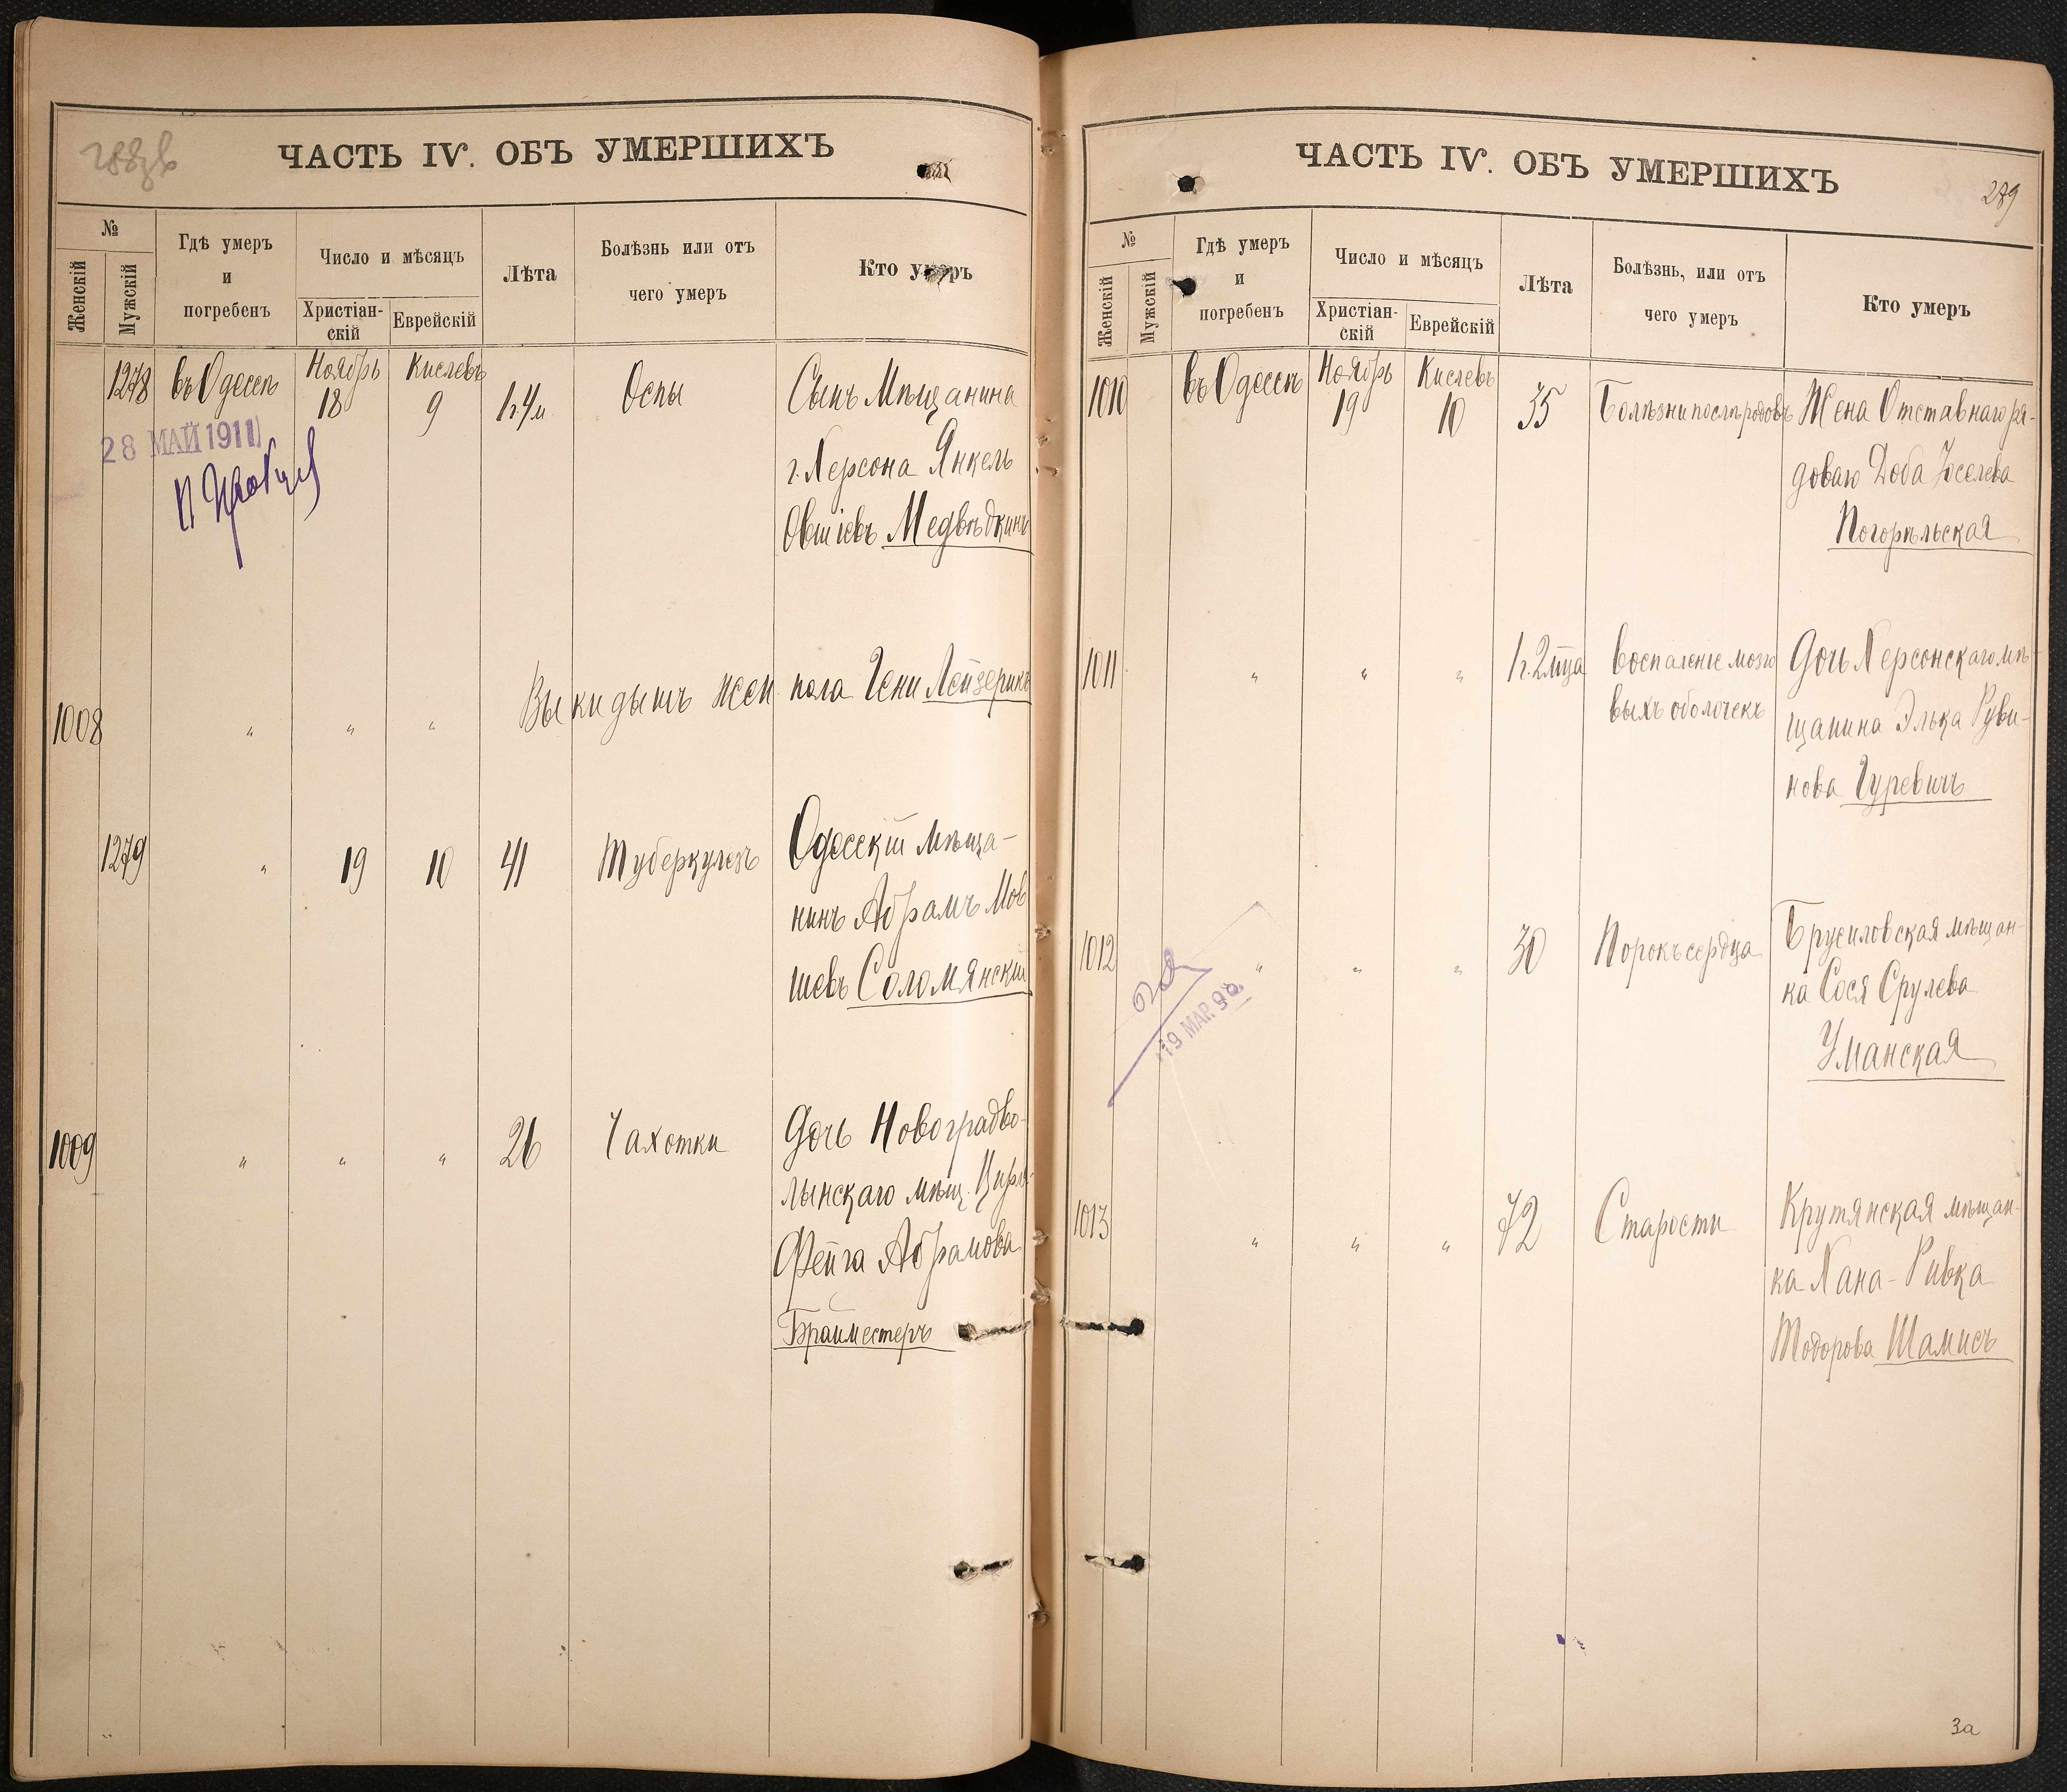 288об
ЧАСТЬ IV. ОБЪ УМЕРШИХЪ
№
Женскій
Мужскій
Гдѣ умеръ
и
погребенъ
Число и мѣсяцъ
Христіан-
скій
Еврейскій
Лѣта
Болѣзнь или отъ
чего умеръ
Кто умеръ
1278 въ Одессѣ Ноябрь 18 Кислевъ 9 1 г. 4 м. Оспы Сынъ Мѣщанина
г. Херсона Янкель
Овшіевъ Медвѣдкинъ
28 МАЙ 1911
1008 " " " Выкидышъ жен. пола Гени Лейзерикъ
1279 " 19 10 41 Туберкулезъ Одесскій мѣща-
нинъ Абрамъ Мов
шевъ Соломянскій
1009 " " " 26 Чахотки Дочь Новоградво-
лынскаго мѣщ. Цирля-
Фейга Абрамова
Брайместеръ
ЧАСТЬ IV. ОБЪ УМЕРШИХЪ
289
№
Женскій
Мужскій
Гдѣ умеръ
и
погребенъ
Число и мѣсяцъ
Христіан-
скій
Еврейскій
Лѣта
Болѣзнь, или отъ
чего умеръ
Кто умеръ
1010 въ Одессѣ Ноябрь 19 Кислевъ 10 35 Болѣзни послѣ родовъ Жена Отставнаго ря-
доваго Доба Іоселева
Погорѣльская
1011 " " " 1 г. 2 мца Воспаленіе мозго
выхъ оболочекъ
Дочь Херсонскаго мѣ-
щанина Элька Руви-
нова Гуревичъ
1012 " " " 30 Порокъ сердца Брусиловская мѣщан-
ка Сося Срулева
Уманская
19 МАР. 98
1013 " " " 72 Старости Крутянская мѣщан-
ка Хана-Ривка
Тодорова Шамисъ
3а